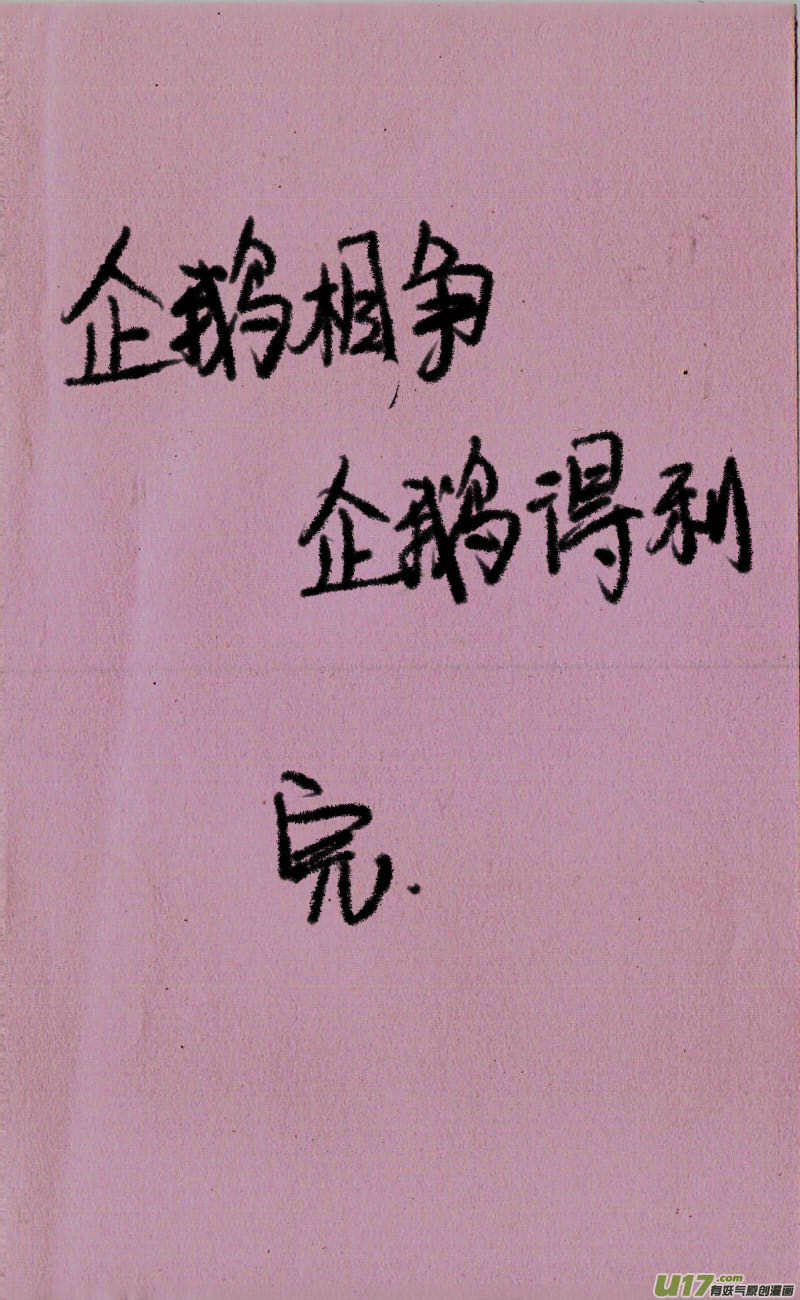 企鹅相争
企鹅得利
完.
U17.com
有妖气原创漫画